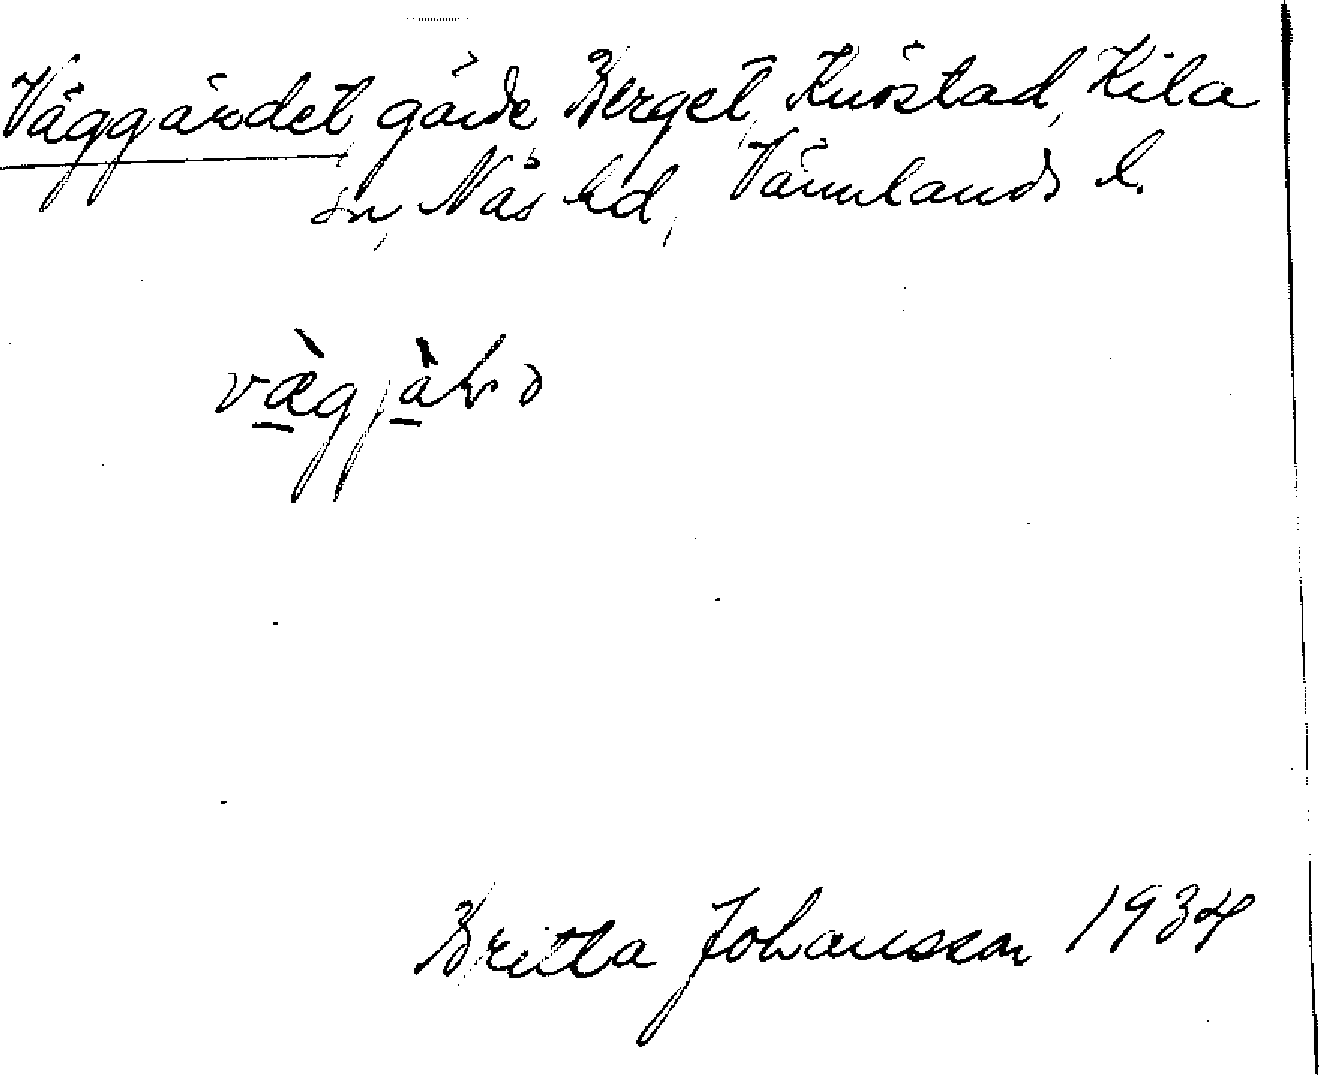 Väggärdet gärde Berget, Knöstad, Kila
sn, Näs hd, Värmlands l.
Britta Johansson 1934